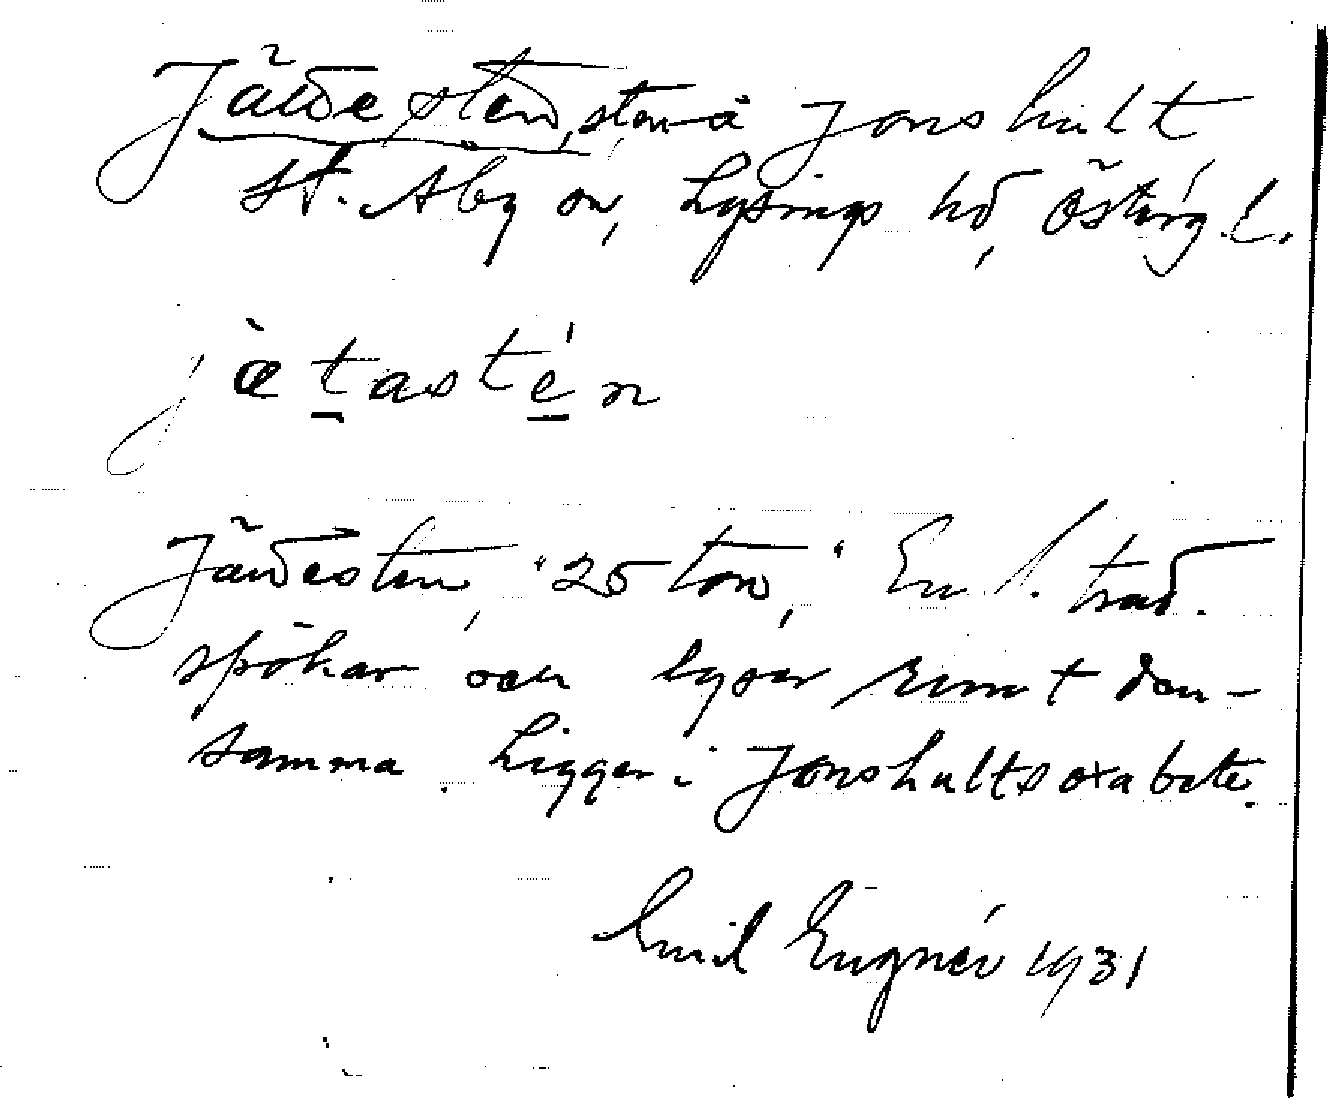 Jättesten, sten å Jonshult
St. Åby sn, Lysings hd, Östergl.
jætastén
Jättesten, "25 ton," En l. trad.
spökar och lyser runt den-
samma. Ligger i Jonshults oxabete.
Emil Engnér 1931